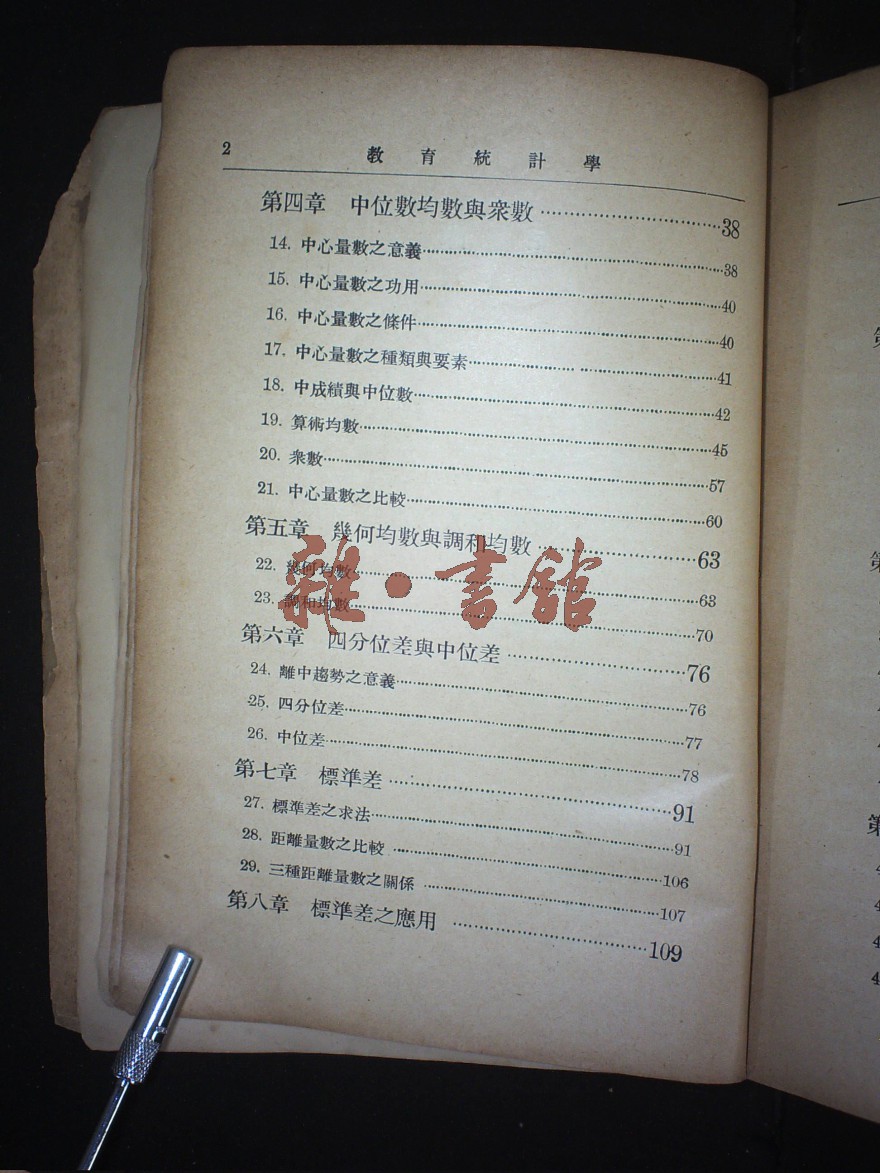 2 教育統計學
第四章 中位數均數與衆數……38
14. 中心量數之意義……38
15. 中心量數之功用……40
16. 中心量數之條件……40
17. 中心量數之種類與要素……41
18. 中成績與中位數……42
19. 算術均數……45
20. 衆數……57
21. 中心量數之比較……60
第五章 幾何均數與調和均數……63
22. 幾何均數……63
23. 調和均數……70
第六章 四分位差與中位差……76
24. 離中趨勢之意義……76
25. 四分位差……77
26. 中位差……78
第七章 標準差……91
27. 標準差之求法……91
28. 距離量數之比較……106
29. 三種距離量數之關係……107
第八章 標準差之應用……109
雜·書館